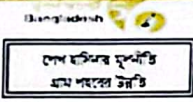 Bangladesh
শেখ হাসিনার মূলনীতি
গ্রাম শহরের উন্নতি